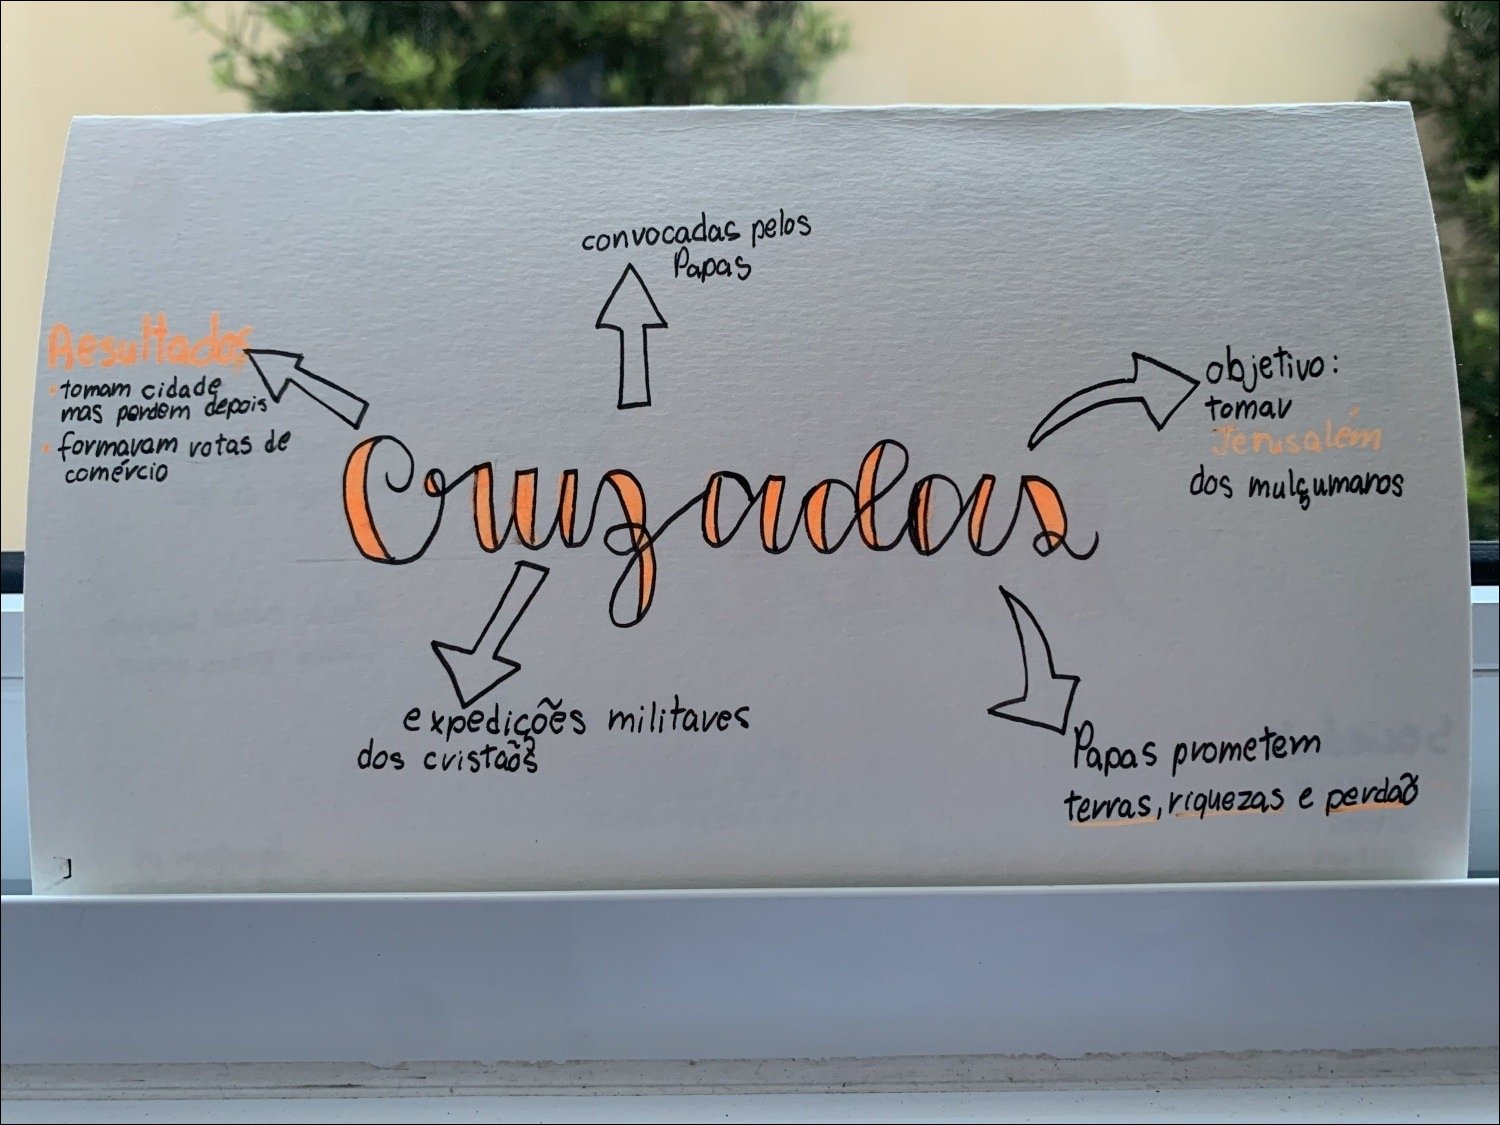 convocadas pelos
Papas
Resultados
• tomam cidade
mas perdem depois
• formavam rotas de
comércio
objetivo:
tomar
Jerusalém
dos mulçumanos
Cruzadas
expedições militares
dos cristãos
Papas prometem
terras, riquezas e perdão